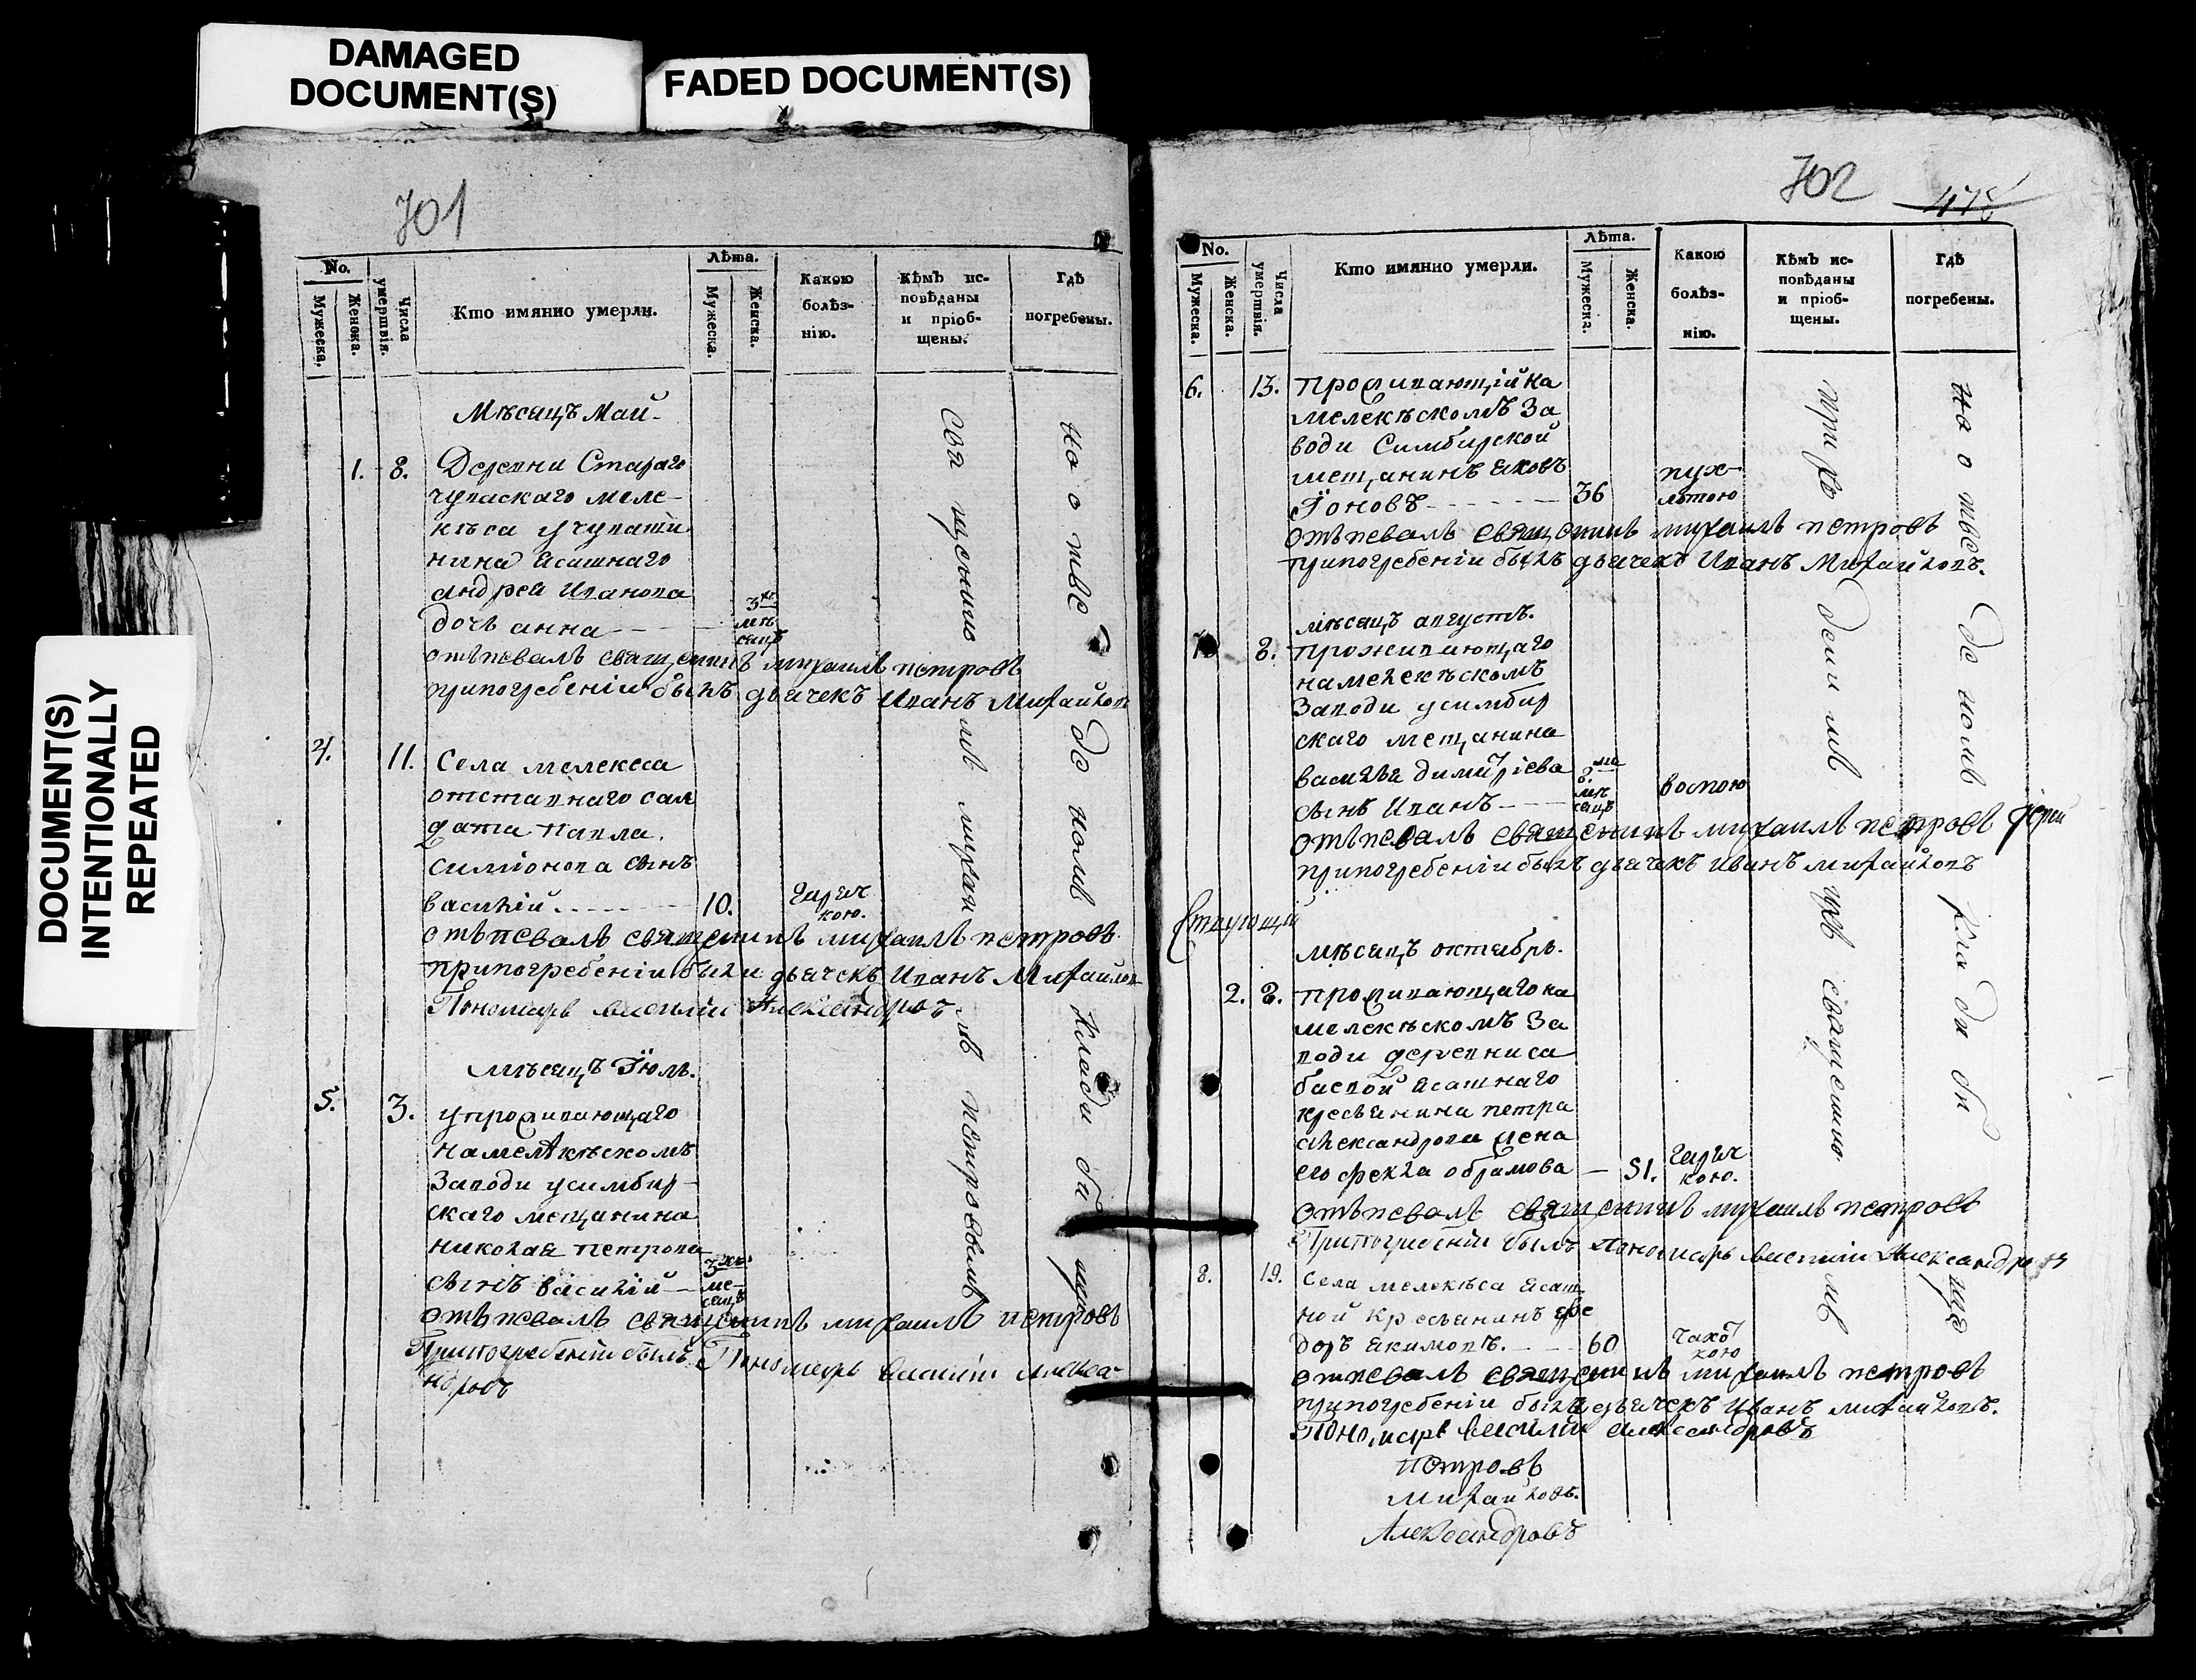 DAMAGED
DOCUMENT(S)
FADED DOCUMENT(S)
DOCUMENT(S)
INTENTIONALLY
REPEATED
701
No.
Мужеска.
Женска.
Числа умертвія.
Кто имянно умерли.
Лѣта.
Мужеска.
Женска.
Какою
болѣз-
нію.
Кѣмъ ис-
повѣданы
и пріоб-
щены.
Гдѣ
погребены.
Мѣсяцъ Май.
1. 8. Деревни Стараго
чувскаго меле-
кѣса у чуваши
нина ясашнаго
андрея Иванова
дочь анна 3 мѣ
сяцъ
отъпевалъ священникъ михаилъ петровъ
припогребеніи былъ дьячекъ Иванъ Михайлов
4. 11. Села мелекеса
отставнаго сал
дата павла
симіонова сынъ
василій 10. гаряч
кою.
отъпевалъ священникъ михаилъ петровъ
припогребеніи были дьячекъ Иванъ Михайлов
Пономарь василій Александровъ
мѣсяцъ Іюль.
5. 3. упроживающаго
намелекѣскомъ
Заводи усимбир-
скаго мещанина
николая петрова
сынъ василій 3 ме-
сяцъ
отъпевалъ священникъ михаилъ петровъ
Припогребеніи былъ Пономарь василій Алекса
ндровъ
священникомъ михаиломъ петровымъ
на отведеномъ кладбищѣ
702
No.
Мужеска.
Женска.
Числа умертвія.
Кто имянно умерли.
Лѣта.
Мужеска.
Женска.
Какою
болѣз-
нію.
Кѣмъ ис-
повѣданы
и пріоб-
щены.
Гдѣ
погребены.
6. 13. проживающій на
мелекѣскомъ За
води Симбирской
мещанинъ яковъ
Іоновъ 36 пух-
лотою
отъпевалъ священникъ михаилъ петровъ
припогребеніи былъ дьячекъ Иванъ Михайловъ.
мѣсяцъ августъ.
8. проживающаго
намелекѣскомъ
Заводи усимбир
скаго мещанина
василья димитріева
сынъ Иванъ 8. мѣ
сяцъ воспою
отъпевалъ священникъ михаилъ петровъ
припогребеніи былъ дьячекъ Иванъ михайловъ
мѣсяцъ октябрь.
2. 8. проживающаго на
мелекѣскомъ За
води деревни са
баевой ясашнаго
кресьянина петра
александрова жена
его фекла обрамова 51. гаряч
кою.
отъпевалъ священникъ михаилъ петровъ
Припогребеніи былъ пономарь василій Александровъ
8. 19. Села мелекѣса ясаш
ной кресьянинъ фе
доръ якимовъ. 60 чахо
кою
отпевалъ священникъ михаилъ петровъ
припогребеніи былъ дьячекъ Иванъ михайловъ.
Пономарь василій александровъ
петровъ
михайловъ.
Александровъ
священникомъ
на отведеномъ кладбищѣ